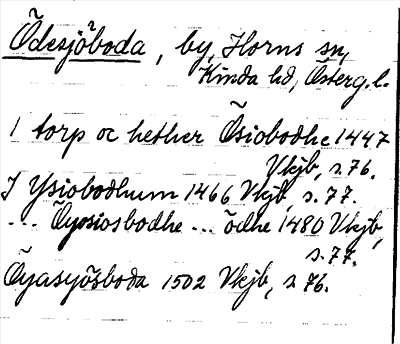 Ödesjöboda, by, Horns sn,
Kinda hd, Österg.l.
1 torp oc hether Ösiobodhe 1447
Vkjb, s. 76.
J Ysiobodhum 1466 Vkjb, s. 77.
... Öyosiosbodhe ... ödhe 1480 Vkjb,
s. 77.
Öyasyösboda 1502 Vkjb, s. 76.